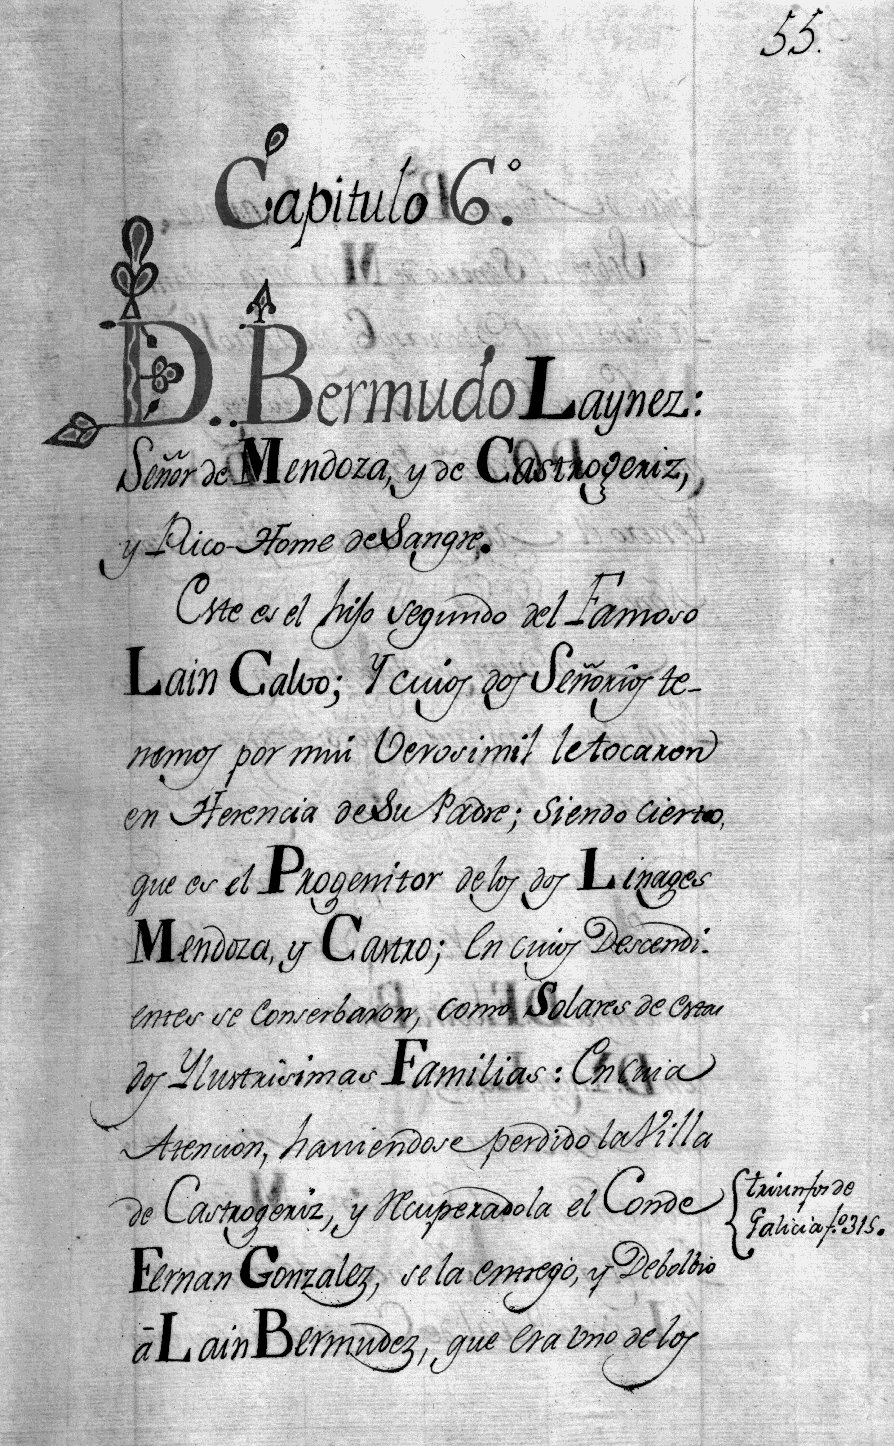 55.
Capitulo 6.º
D. Bermudo Laynez:
Señor de Mendoza, y de Castrogeriz,
y Rico-Home de Sangre.
Este es el hijo segundo del Famoso
Lain Calvo; Y cuios dos Señoríos te-
nemos por mui Verosimil le tocaron
en Herencia de Su Padre; siendo cierto,
que es el Progenitor de los dos Linages
Mendoza, y Castro; En cuios Descendi-
entes se conserbaron, como Solares de estas
dos Ylustrisimas Familias: En cuia
Atencion, haviendose perdido la Villa
de Castrogeriz, y Recuperadola el Conde
{triunfos de
Galicia f.º 315.
Fernan Gonzalez, se la entregò, y Debolbio
ā Lain Bermudez, que era uno de los